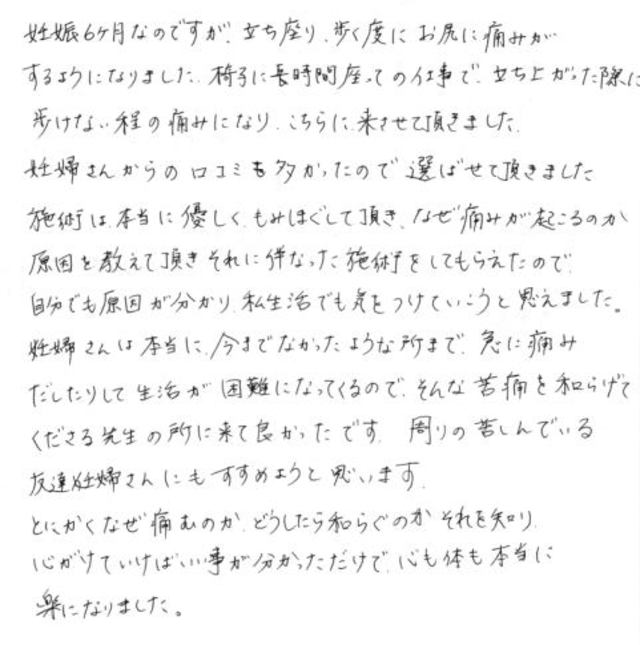 妊娠6ヶ月なのですが、立ち座り、歩く度にお尻に痛みが
するようになりました。椅子に長時間座っての仕事で、立ち上がった際に
歩けない程の痛みになり、こちらに来させて頂きました。
妊婦さんからの口コミも多かったので選ばせて頂きました
施術は本当に優しく、もみほぐして頂き、なぜ痛みが起こるのか
原因を教えて頂きそれに伴なった施術をしてもらえたので、
自分でも原因が分かり、私生活でも気をつけていこうと思えました。
妊婦さんは本当に、今までなかったような所まで、急に痛み
だしたりして生活が困難になってくるので、そんな苦痛を和らげて
くださる先生の所に来て良かったです。周りの苦しんでいる
友達妊婦さんにもすすめようと思います。
とにかくなぜ痛むのか、どうしたら和らぐのかそれを知り、
心がけていけばいい事が分かっただけで、心も体も本当に
楽になりました。